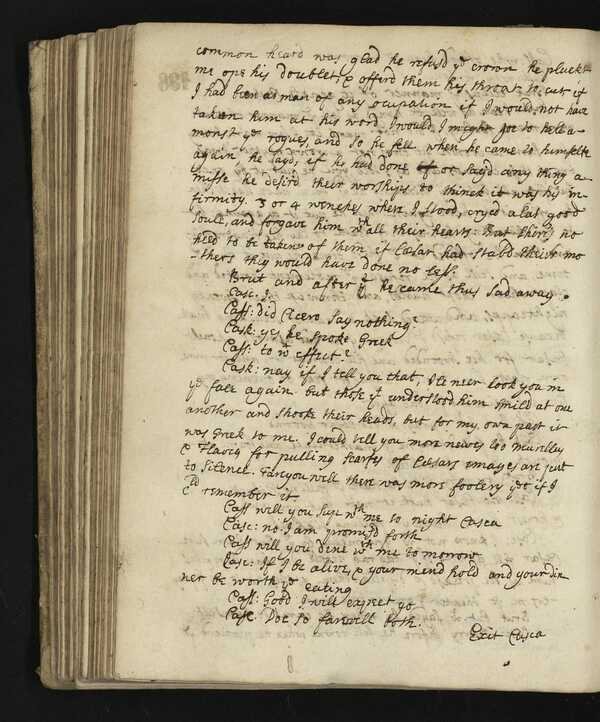 common heard was glad he refusd yͤ crown he pluckt
me ope his doublet, & offerd them his throat to cut if
I had been a man of any ocupation if I would not have
taken him at his word I would I might goe to hell a-
monst yͤ rogues, and so he fell when he came to himselfe
again, he sayd, if he had done or sayd any thing a-
misse he desird their worships to thinck it was his in-
firmity. 3 or 4 wenches where I stood, cryed alas good
soule, and forgave him wᵗʰ all their hearts: But ther's no
heed to be taken of them if Cæsar had stabd their mo
-thers they would have done no less.
Brut and after yᵗ he came thus sad away.
Casc: I
Cass: did Cicero say nothing?
Cask: yes he spoke Greek
Cass: to wᵗ effect?
Cask: nay if I tell you that, Ile neer look you in
yͤ face again. but those yᵗ understood him smild at one
another and shooke their heads, but for my own part it
was Greek to me. I could tell you more newes too murelley
& Flavig for pulling scarfes of Cæsars images are put
to silence. Fare you well there was more foolery yet if I
cᵈ remember it
Cass will you sup wᵗʰ me to night Casca
Casc: no I am promisd forth
Cass will you dine wᵗʰ me to morrow
Casc: If I be alive, & your mind hold and your din
ner be worth yͤ eating
Cass: Good I will expect yo
Casc Doe so farwell both.
Exit Casca